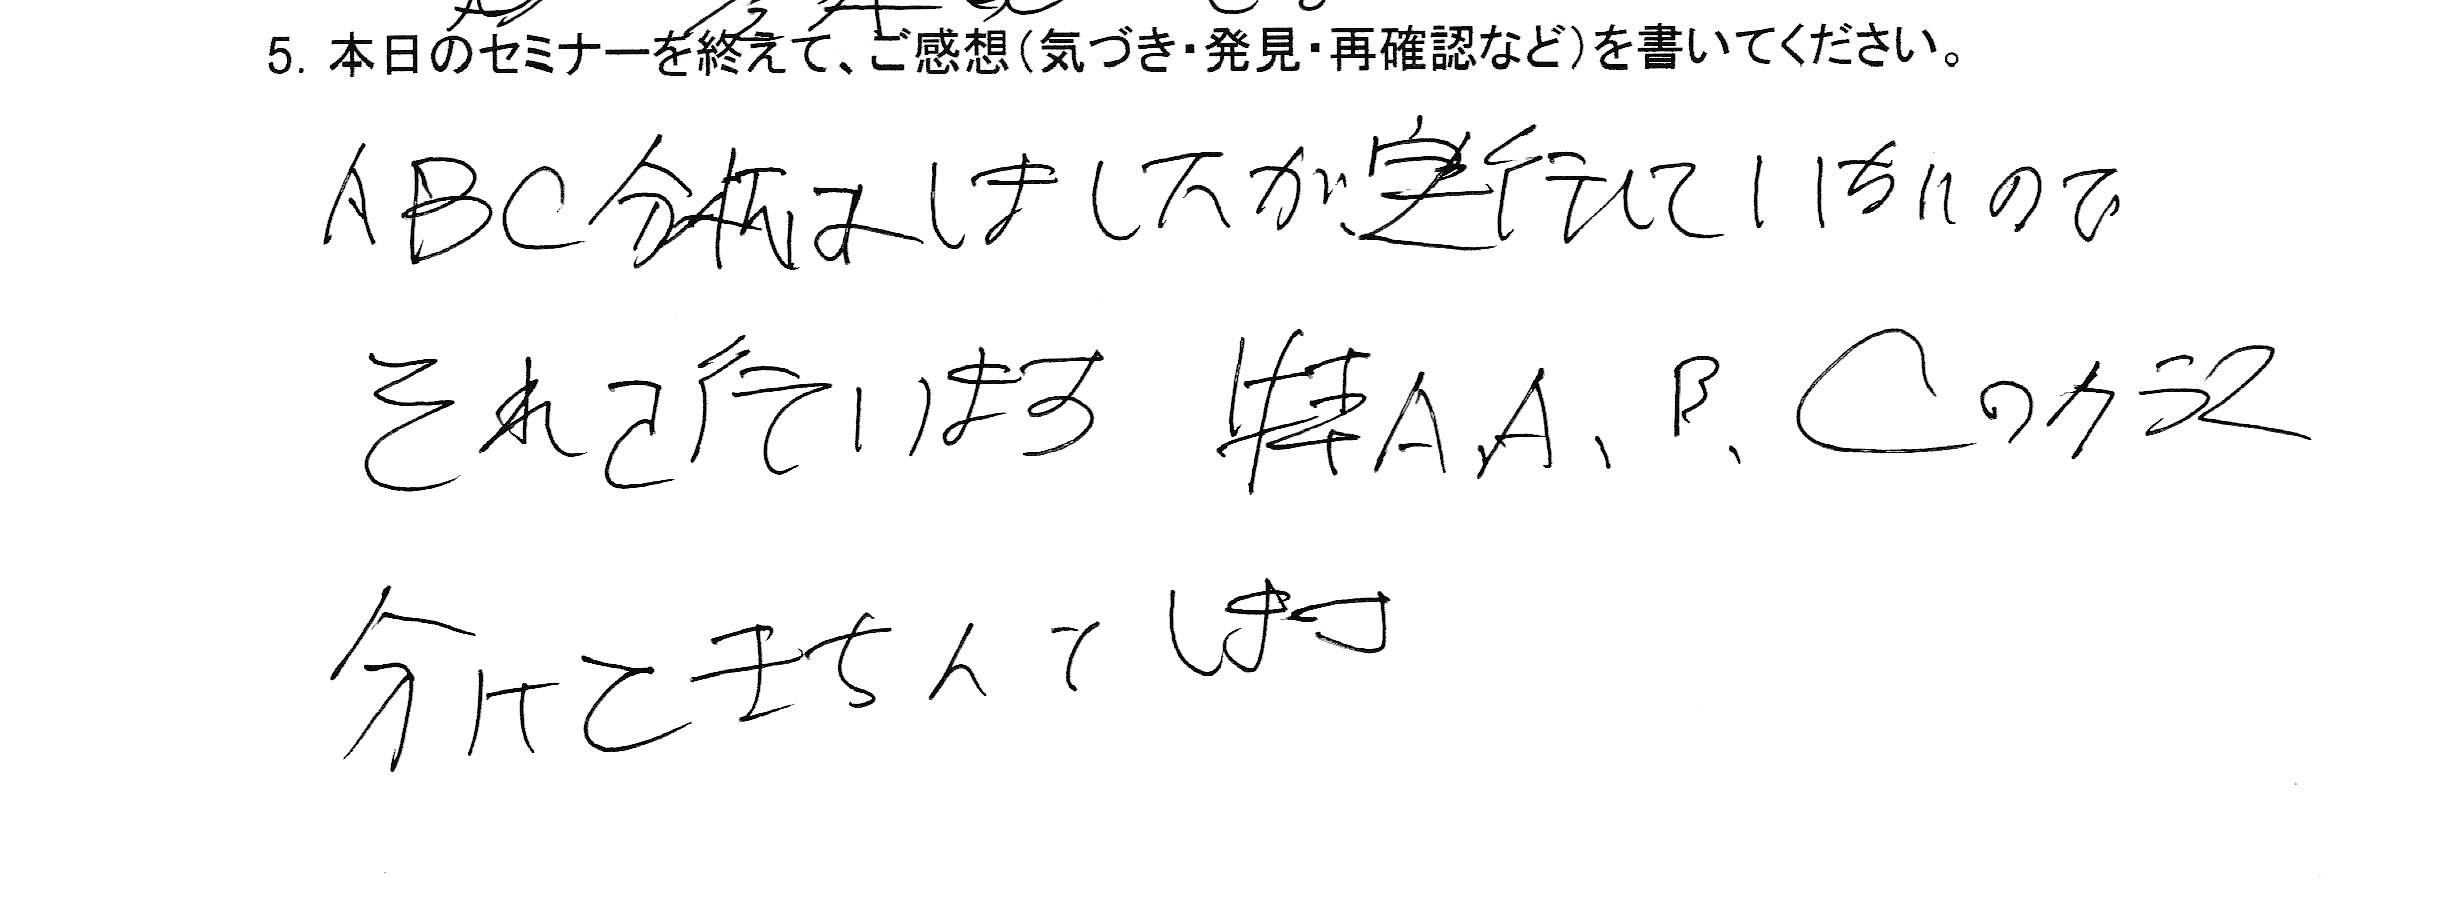 5. 本日のセミナーを終えて、ご感想(気づき・発見・再確認など)を書いてください。
ABC分析はしましたが、実行していないので
それを行ています 特A、A、B、Cのクラス
分けをきちんとします